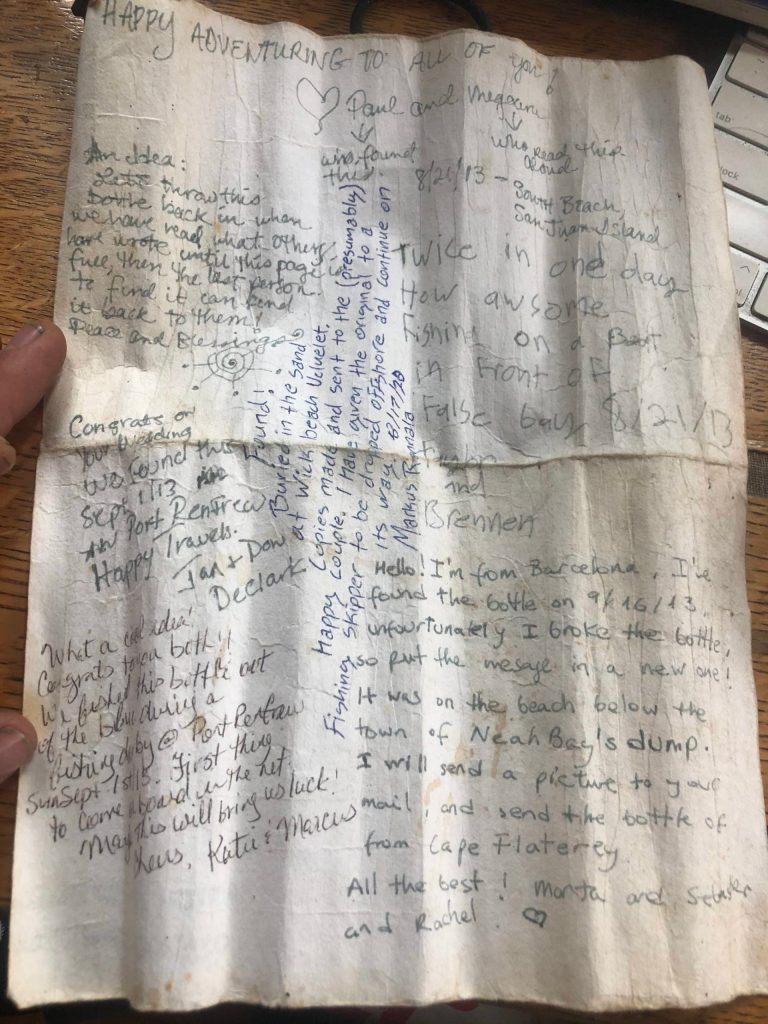 HAPPY ADVENTURING TO ALL OF you!
♡ Paul and Megann
who found
this.
who read this
aloud
8/21/13 - South Beach,
San Juan Island
An Idea:
Let's throw this
bottle back in when
we have read what others
have wrote until this page is
full, then the last person
to find it can send
it back to them!
Peace and Blessings
Twice in one day
How awsome
Fishing on a Boat
in Front of
False bay 8/21/13
and
Brennen
Congrats on
your wedding
We found this
Sept 1/13
in Port Renfrew
Happy Travels.
Jan + Don
Declark
Found!
Buried in the sand
at Wick beach Ucluelet.
Copies made and sent to the (presumably)
Happy couple. I Have given the original to a
Fishing skipper to be dropped offshore and continue on
its way 8/17/20
Markus
What a cool idea!
Congrats to you both!
We fished this bottle out
of the blue during a
fishing derby @ Port Renfrew
Sun Sept 1st 13. First thing
to come aboard in the net.
May this will bring us luck!
Katie & Marcus
Hello! I'm from Barcelona, I've
found the bottle on 9/16/13,
unfortunately I broke the bottle,
so put the mesage in a new one!
It was on the beach below the
town of Neah Bay's dump.
I will send a picture to your
mail, and send the bottle of
from Cape Flaterey
All the best! Marta and
and Rachel. ♡
tab
lock